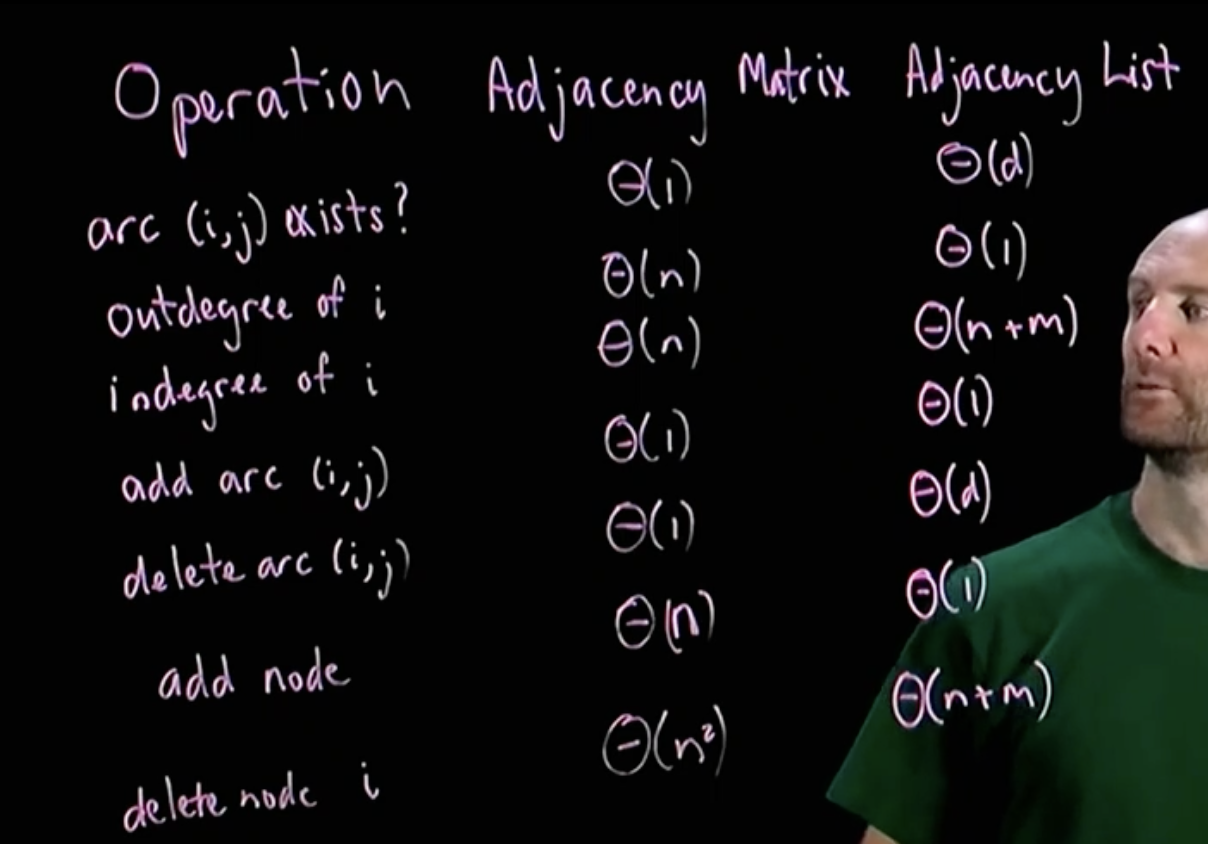 Operation Adjacency Matrix Adjacency List
arc (i,j) exists? Θ(1) Θ(d)
outdegree of i Θ(n) Θ(1)
indegree of i Θ(n) Θ(n+m)
add arc (i,j) Θ(1) Θ(1)
delete arc (i,j) Θ(1) Θ(d)
add node Θ(n) Θ(1)
delete node i Θ(n²) Θ(n+m)